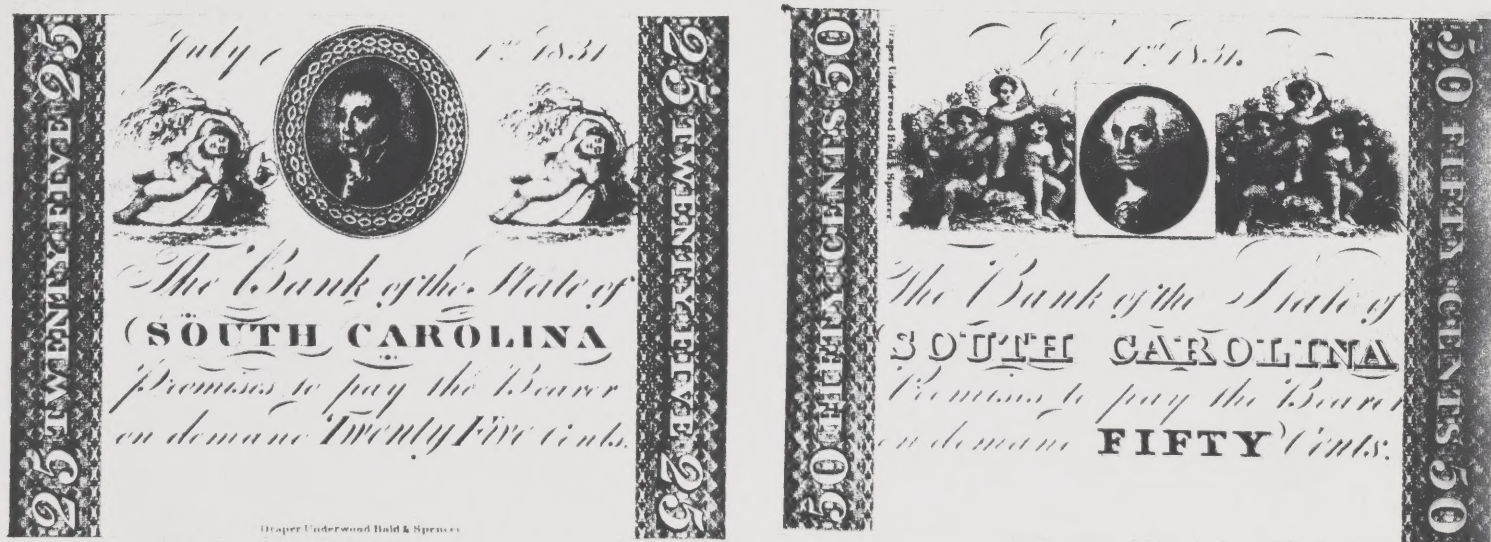 25 TWENTY FIVE 25
July 1st 1831
The Bank of the State of
SOUTH CAROLINA
Promises to pay the Bearer
on demand Twenty Five Cents.
Draper Underwood Bald & Spencer
25 TWENTY FIVE 25
50 FIFTY CENTS 50
Draper Underwood Bald & Spencer
1st 1831.
The Bank of the State of
SOUTH CAROLINA
Promises to pay the Bearer
on demand FIFTY Cents.
50 FIFTY CENTS 50